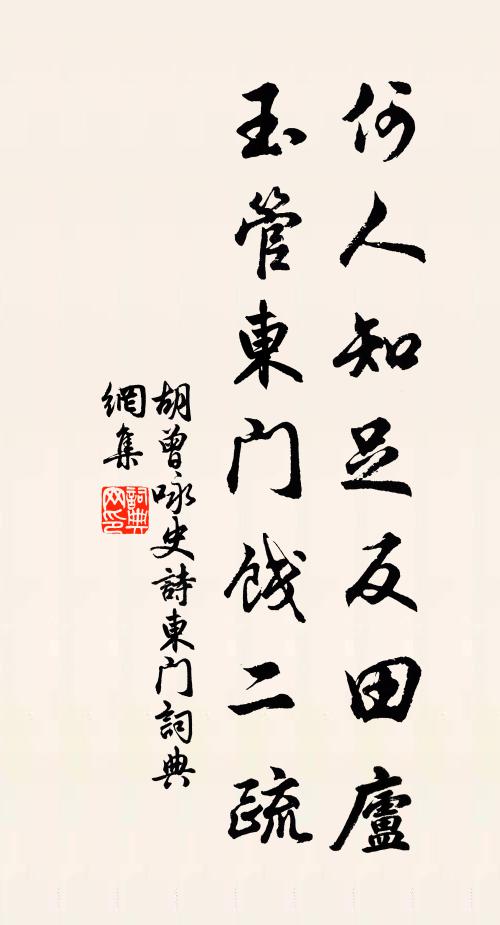 何人知足反田廬
玉管東門餞二疏
胡曾咏史詩東門詞典
網集
詞典網印